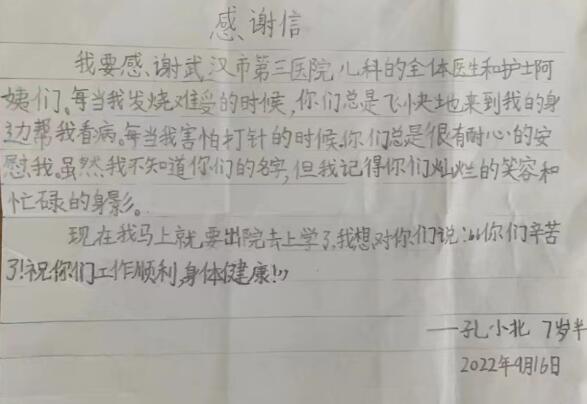 感谢信
我要感谢武汉市第三医院儿科的全体医生和护士阿
姨们。每当我发烧难受的时候,你们总是飞快地来到我的身
边帮我看病。每当我害怕打针的时候,你们总是很有耐心的安
慰我。虽然我不知道你们的名字,但我记得你们灿烂的笑容和
忙碌的身影。
现在我马上就要出院去上学了,我想对你们说:“你们辛苦
了!祝你们工作顺利,身体健康!”
——孔小北 7岁半
2022年4月16日